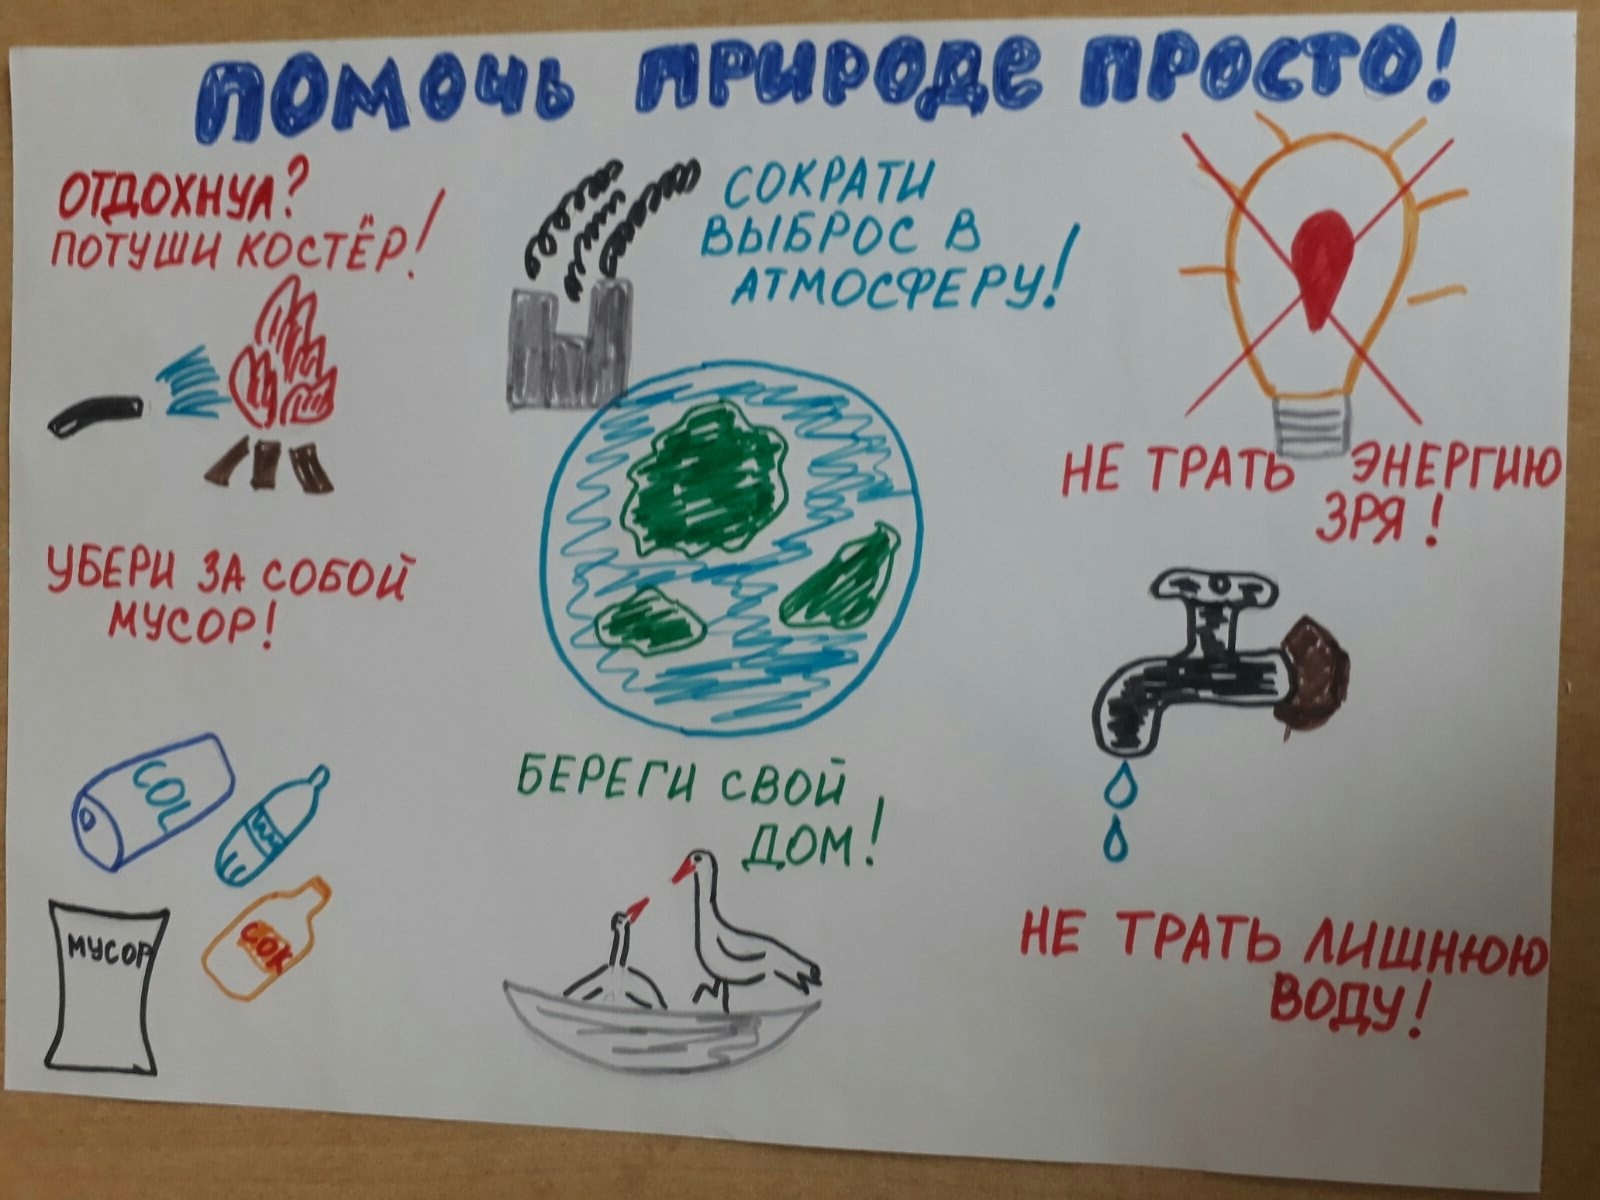 ПОМОЧЬ ПРИРОДЕ ПРОСТО!
ОТДОХНУЛ?
ПОТУШИ КОСТЁР!
СОКРАТИ
ВЫБРОС В
АТМОСФЕРУ!
НЕ ТРАТЬ ЭНЕРГИЮ
ЗРЯ!
УБЕРИ ЗА СОБОЙ
МУСОР!
COL
СОК
МУСОР
БЕРЕГИ СВОЙ
ДОМ!
НЕ ТРАТЬ ЛИШНЮЮ
ВОДУ!